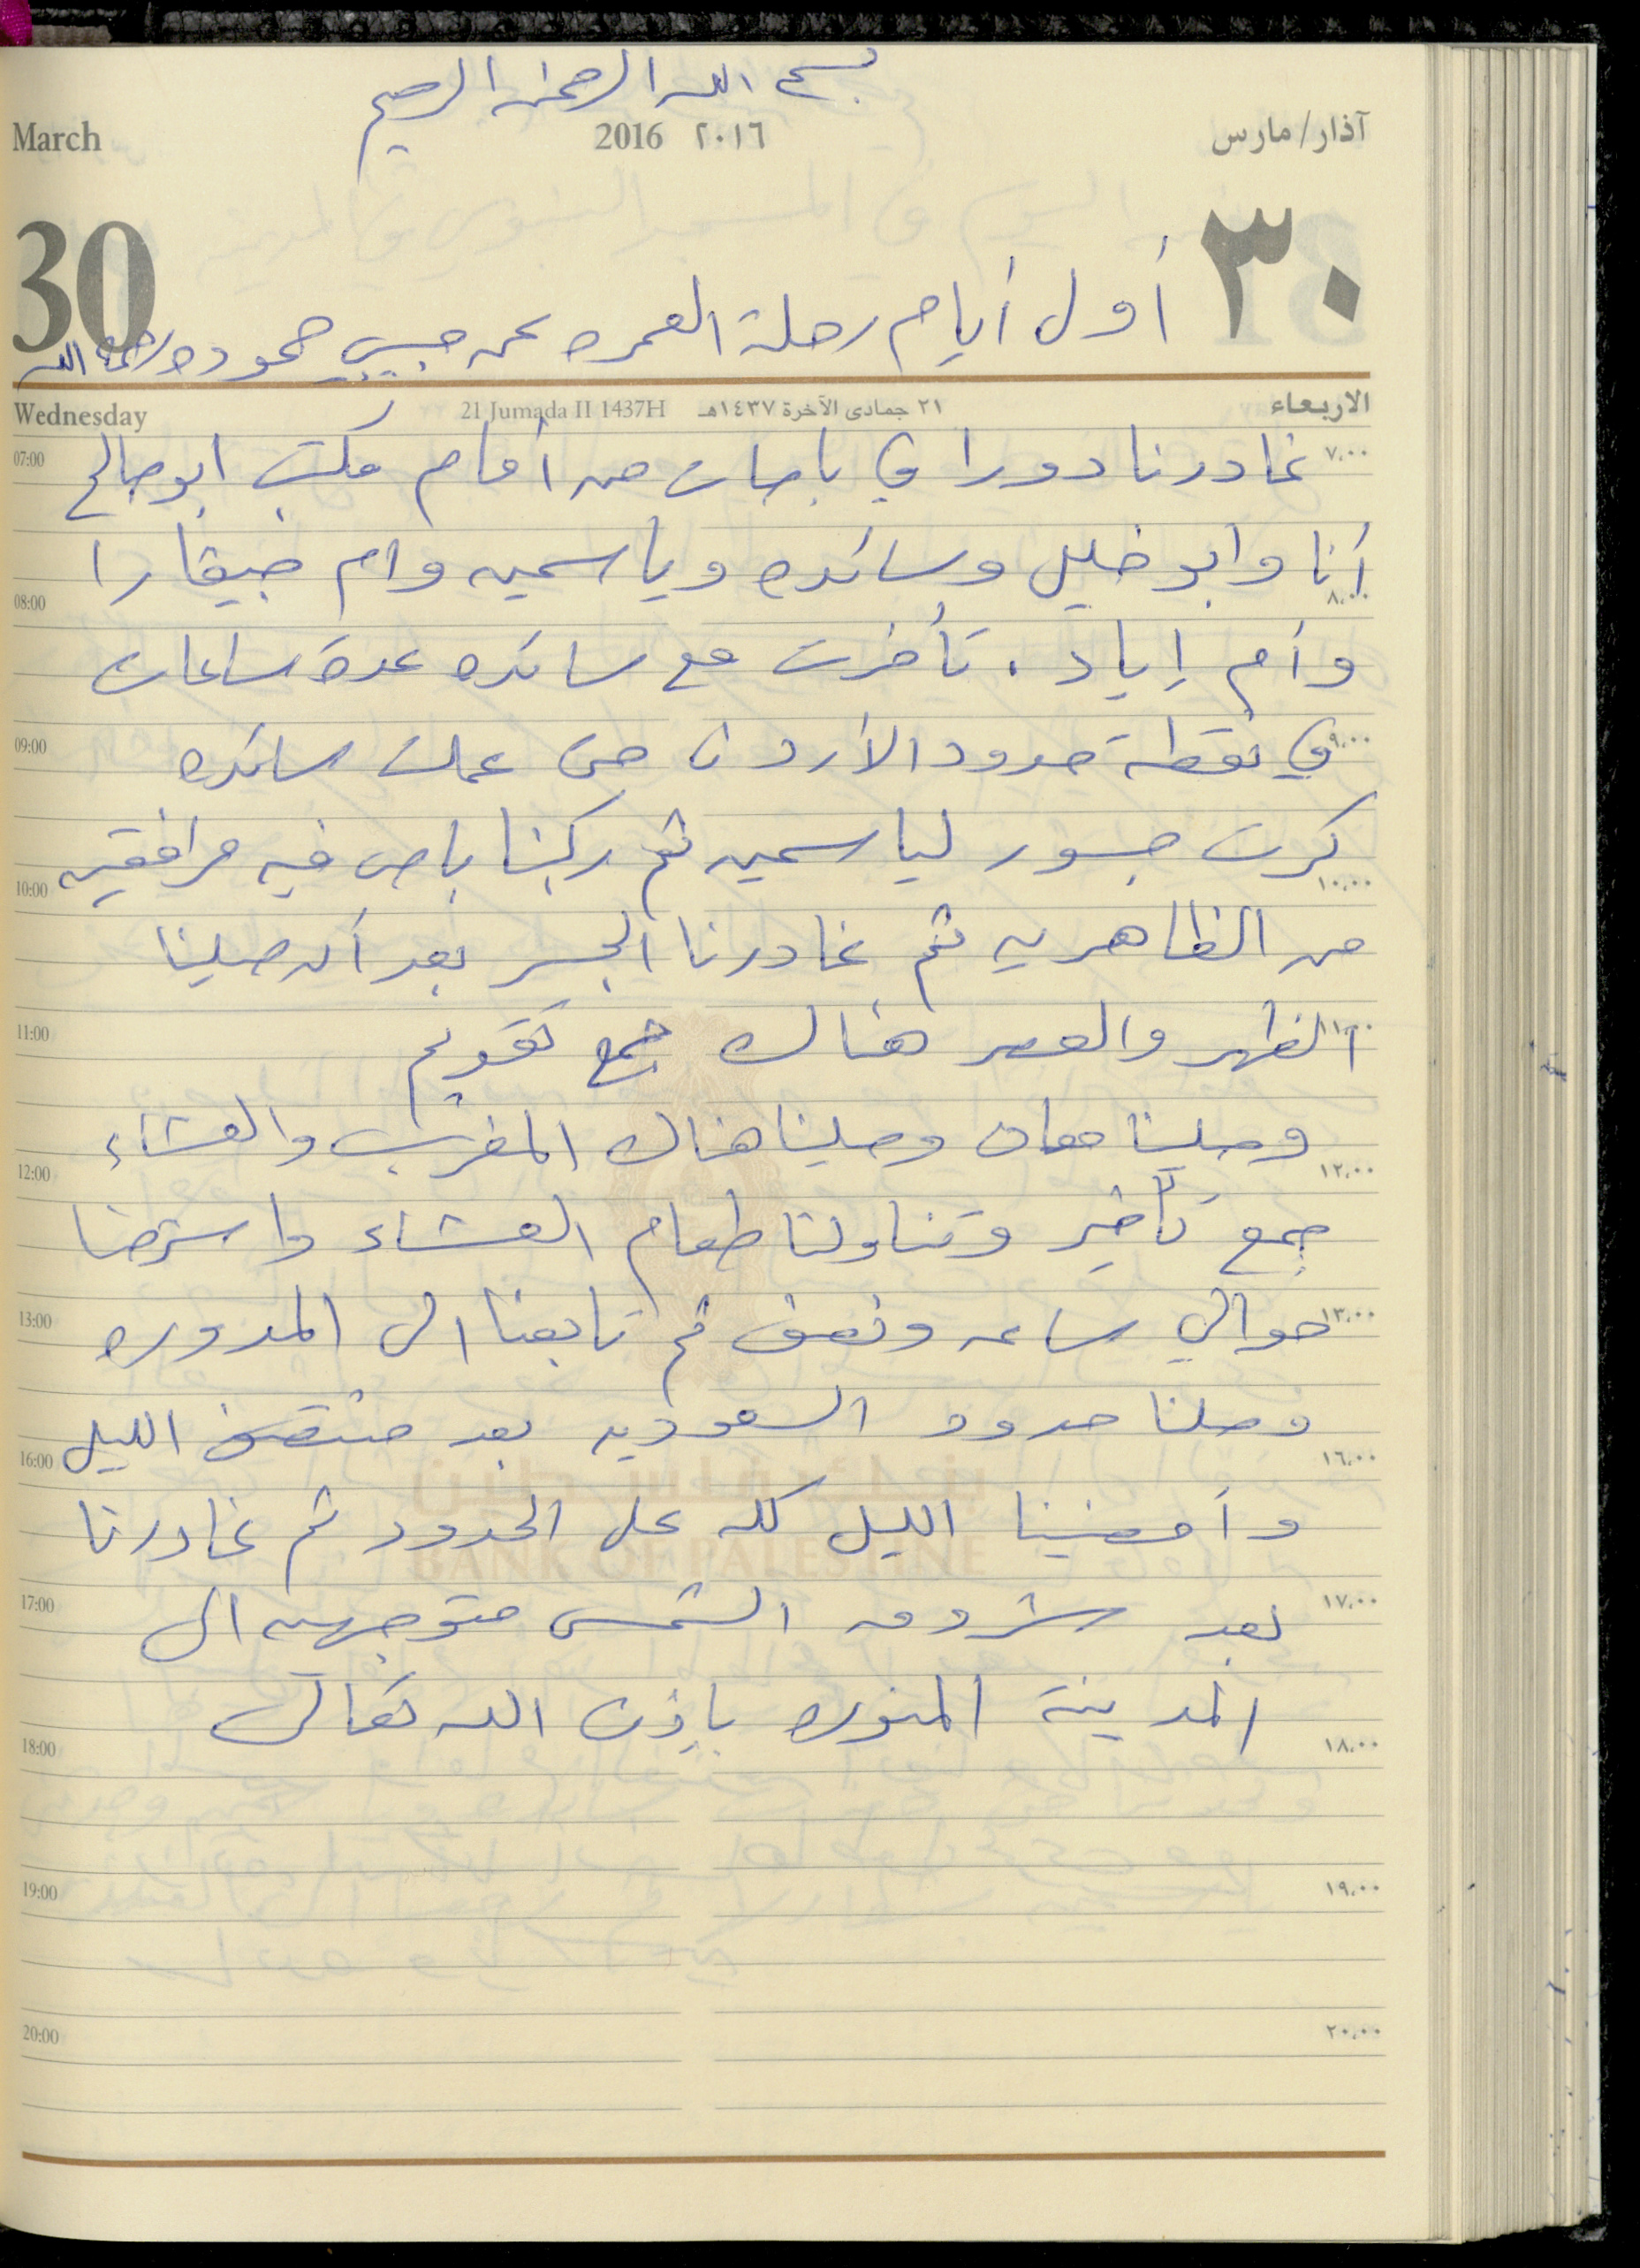 بسم الله الرحمن الرحيم
March 2016 ٢٠١٦ آذار/مارس
30 ٣٠
أول أيام رحلة العمره عن حبيبي حموده رحمه الله
Wednesday 21 Jumada II 1437H ٢١ جمادى الآخرة ١٤٣٧هـ الاربعاء
07:00 غادرنا دورا في باصات من أمام مكتب ابو صالح ٧،٠٠
أنا وابو خليل وسائده وياسمين وام
08:00 ٨،٠٠
وأم إياد . تأخرت مع سائده عدة ساعات
09:00 في نقطة حدود الأردن حتى عملت سائده ٩،٠٠
كرت جسور لياسمين ثم ركبنا باص فيه مرافقين
10:00 ١٠،٠٠
من الظاهريه ثم غادرنا الجسر بعد أن صلينا
11:00 الظهر والعصر هناك جمع تقديم ١١،٠٠
وصلنا معان وصلينا هناك المغرب والعشاء
12:00 ١٢،٠٠
جمع تأخير وتناولنا طعام العشاء واسترحنا
13:00 حوالي ساعه ونصف ثم تابعنا الى المدوره ١٣،٠٠
وصلنا حدود السعوديه بعد منتصف الليل
16:00 ١٦،٠٠
بنك فلسطين
وأمضينا الليل كله على الحدود ثم غادرنا
BANK OF PALESTINE
17:00 بعد شروق الشمس متوجهين الى ١٧،٠٠
المدينة المنوره بإذن الله تعالى
18:00 ١٨،٠٠
19:00 ١٩،٠٠
20:00 ٢٠،٠٠